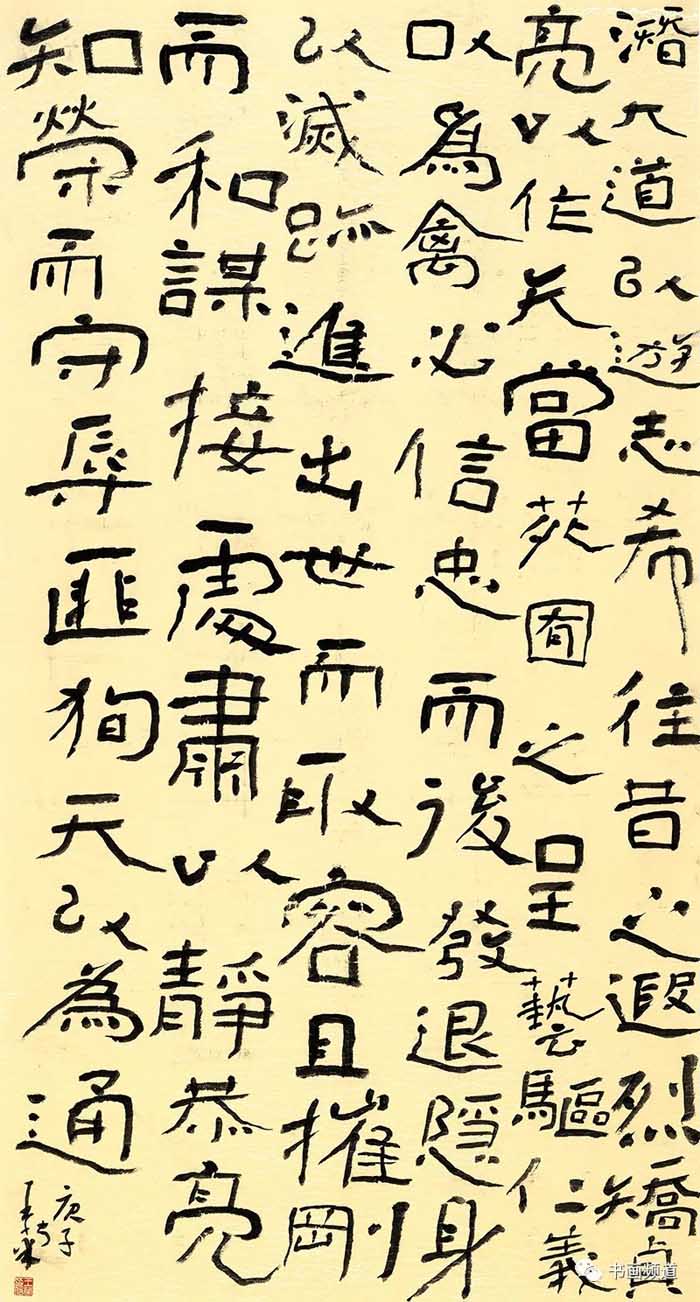 潛大道以遊志希往昔之遐烈矯貞
亮以作矢當苑囿之呈藝驅仁義
以爲禽必信忠而後發退隱身
以滅跡進出世而取容且摧剛
而和謀接處肅以靜恭亮
知榮而守辱匪狥天以為通
庚子
书画频道